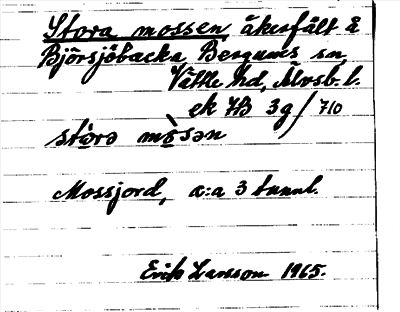 Stora mossen åkerfält å
Björsjöbacka Bergums sn,
Vättle hd, Älvsb. l.
ek 7B 3g/710
stòrə mòsən
Mossjord, c:a 3 tunnl.
Erik Larsson 1965.